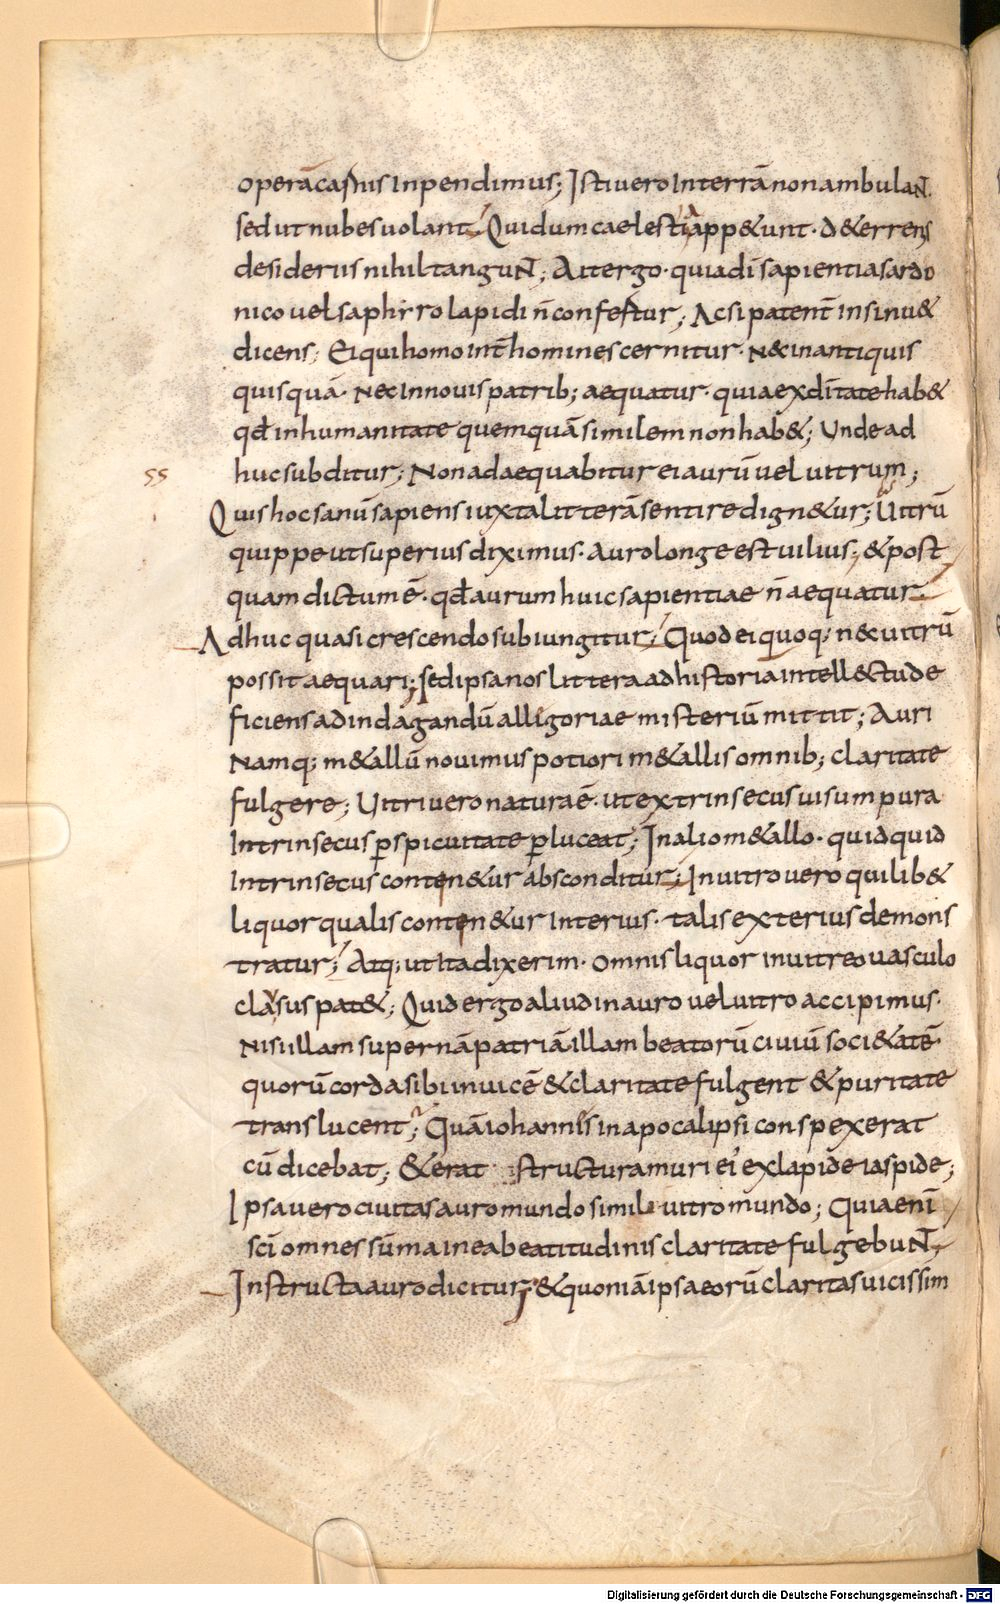 operā carnis inpendimus; Isti vero in terrā non ambulaN.
sed ut nubes uolant; Qui dum caelestia app&unt. d& errenis
desideriis nihil tanguN; At tergo. quia dī sapientia sardo
nico uel saphirro lapidi n̄ confertur; Ac si patent̄ insinu&
dicens; Ei qui homo int̄ homines cernitur. N& in antiquis
quisquā. Nec in nouis patrib; aequatur. quia ex dītate hab&
qđ in humanitate quemquā similem non hab&; Unde ad
huc subditur; Non adaequabitur ei aurū uel uitrum;
ss
Quis hoc sanū sapiens iuxta litterā sentire dign&ur; Uitrū
quippe ut superius diximus. auro longe est uilius; & post
quam dictum ē. qđ aurum huic sapientiae n̄ aequatur.
Adhuc quasi crescendo subiungitur; Quod ei quoq; n& uitrū
possit aequari; sed ipsa nos littera ad historia intell&ctu de
ficiens ad indagandū alligoriae misteriū mittit; Auri
Namq; m&allū nouimus potiori m&allis omnib; claritate
fulgere; Uitri uero natura ē. ut extrinsecus uisum pura
Intrinsecus p̱spicuitate p̱luceat; In alio m&allo. quidquid
Intrinsecus conten&ur absconditur; In uitro uero quilib&
liquor qualis conten&ur Interius. talis exterius demons
tratur; Atq; ut ita dixerim. omnis liquor in uitreo uasculo
clausus pat&; Quid ergo aliud in auro uel uitro accipimus.
Nisi illam supernā patriā. illam beatorū ciuiū soci&atē.
quorū corda sibi inuicē & claritate fulgent & puritate
translucent; Quā iohannis in apocalipsi conspexerat
cū dicebat; & erat structura muri ei' ex lapide iaspide;
Ipsa uero ciuitas auro mundo simile uitro mundo; Quia enī
sc̄i omnes sūma in ea beatitudinis claritate fulgebuN;
Instructa auro dicitur; & quoniā ipsa eorū claritas uicissim
Digitalisierung gefördert durch die Deutsche Forschungsgemeinschaft - DFG